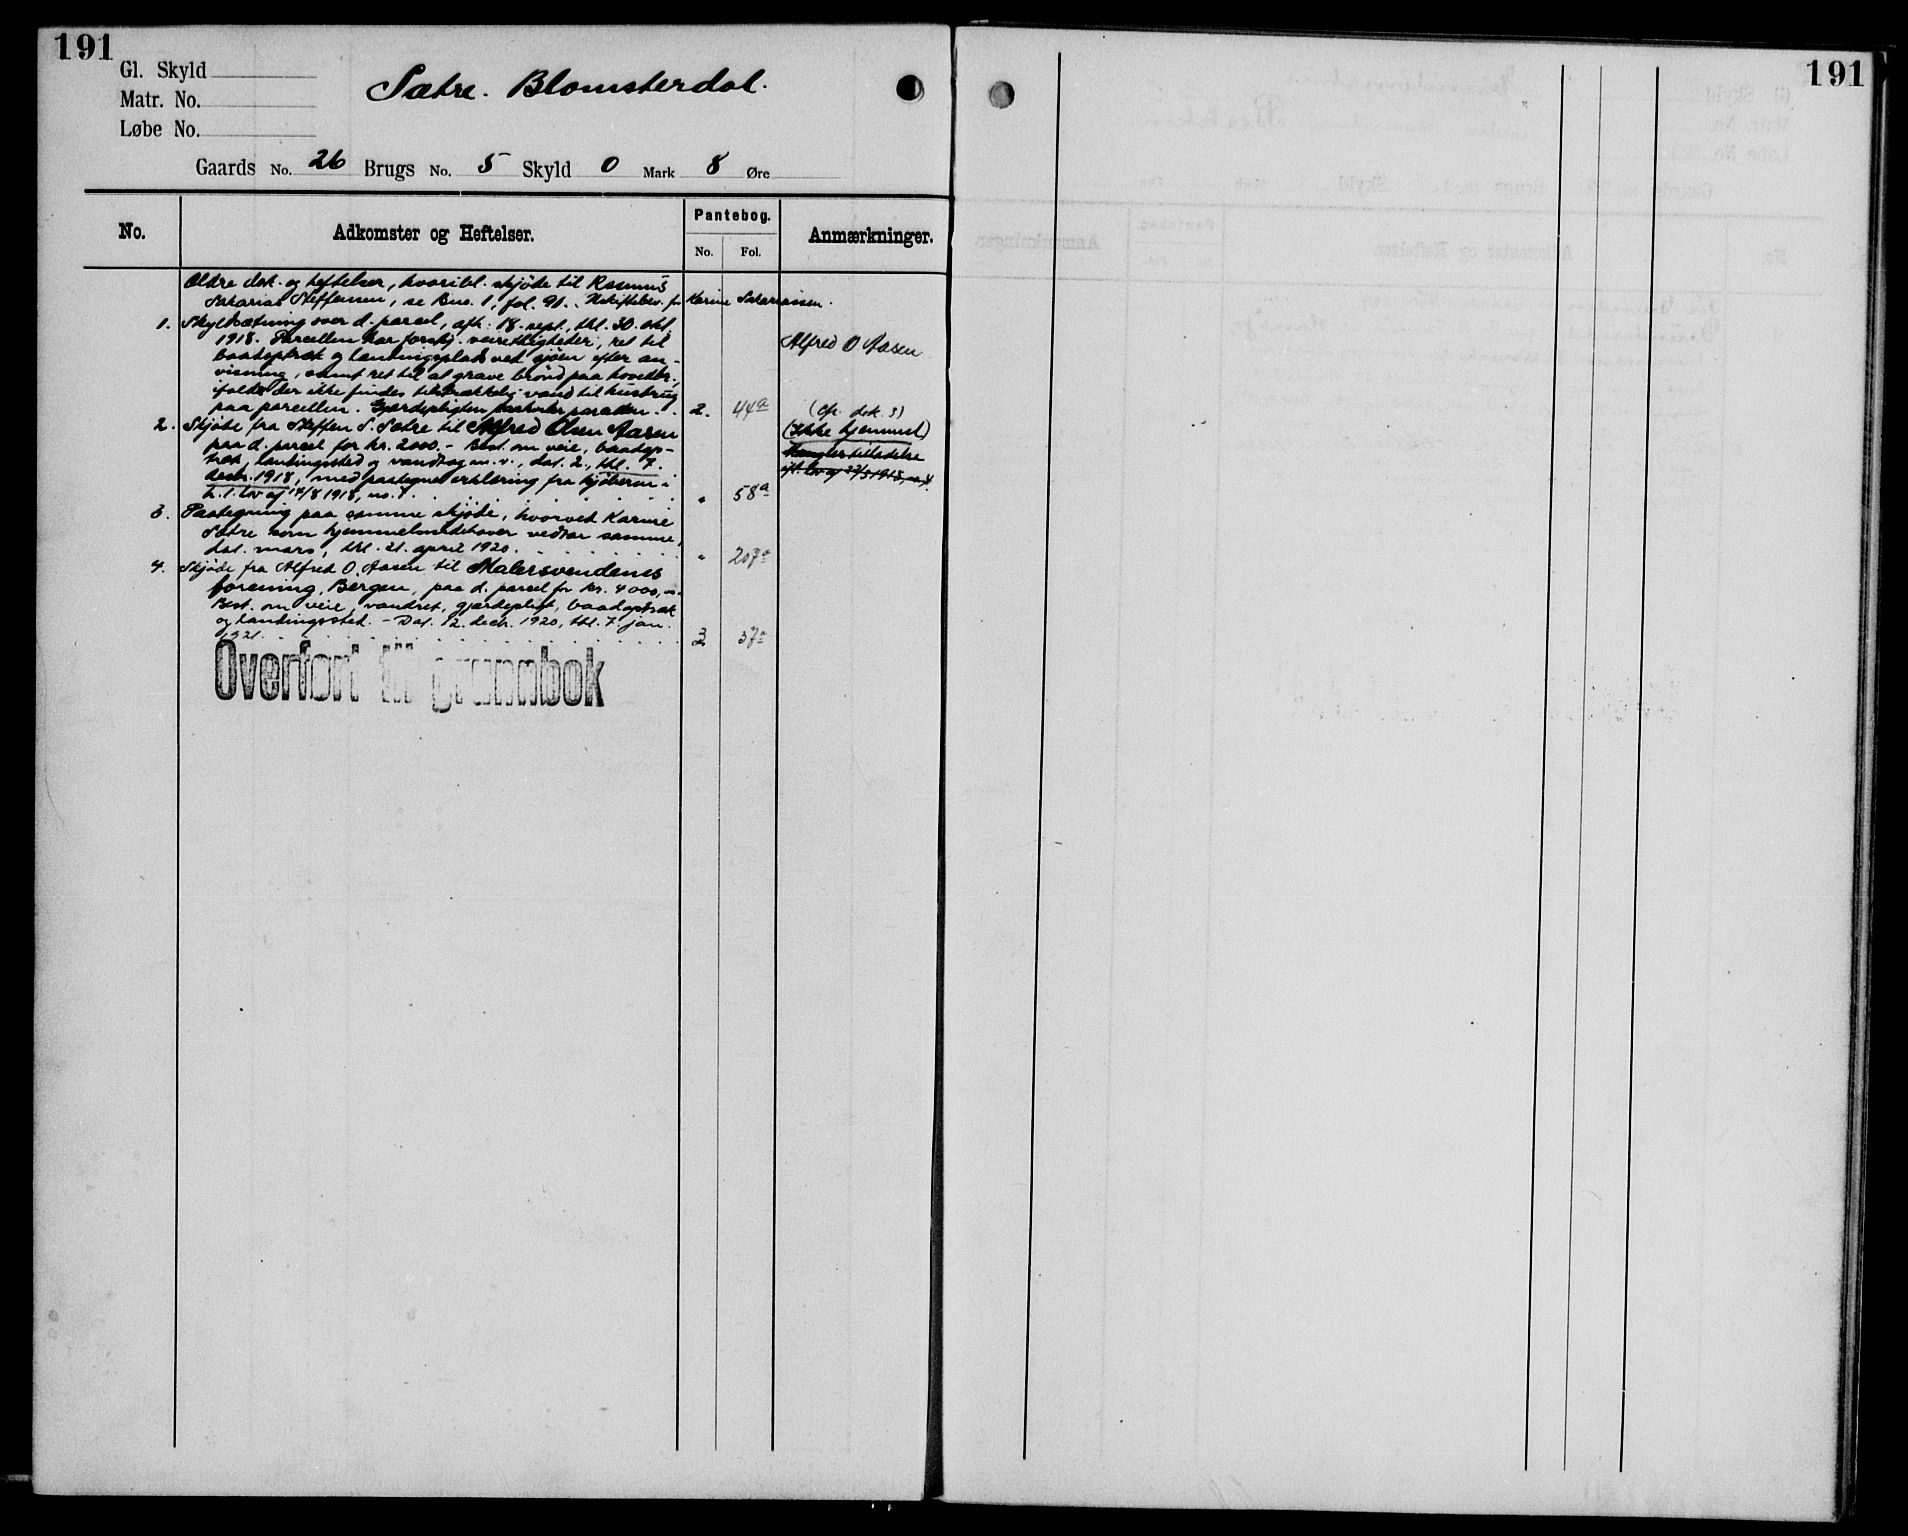 191
191
Gl. Skyld
Matr. No.
Løbe No.
Sætre. Blomsterdal.
Gaards No. 26 Brugs No. 5 Skyld 0 Mark 8 Øre
No.
Adkomster og Heftelser.
Pantebog.
No.
Fol.
Anmærkninger.
Ældre dok. og heftelser, hvoribl. skjøde til Rasmus
Sakarias Steffensen, se Bno. 1, fol. 91. Uskiftebev. for Karine Sakariassen.
1. Skyldsætning over d. parcel, afh. 18. sept., thl. 30. okt.
1918. Parcellen har forskj. veirettigheder, ret til
baadoptræk og landingsplads ved sjøen efter an-
visning, samt ret til at grave brønd paa hovedbr.,
ifald der ikke findes tilstrækkelig vand til husbrug
paa parcellen. Gjærdepligten paahviler parcellen. 2. 44a
Alfred O Aasen
(cfr. dok. 3)
2. Skjøde fra Steffen S. Sætre til Alfred Olsen Aasen
paa d. parcel for kr. 2000.- Best. om veie, baadop-
træk, landingssted og vandtag m. v., dat. 2., thl. 7.
decbr. 1918, med paategnet erklæring fra kjøberen i
h. t. lov af 14/8 1918, no. 4. " 58a
(Ikke hjemmel)
Mangler tilladelse
eft. lov af 22/3 1918, no. 4.
3. Paategning paa samme skjøde, hvorved Karine
Sætre som hjemmelsindehaver vedtar samme,
dat. mars, thl. 21. april 1920. " 207a
4. Skjøde fra Alfred O. Aasen til Malersvendenes
forening, Bergen, paa d. parcel for kr. 4000,00.
Best. om veie, vandret, gjærdepligt, baadoptræk
og landingssted. - Dat. 12. decbr. 1920, thl. 7. jan.
1921. 3 37a
Overført til grunnbok